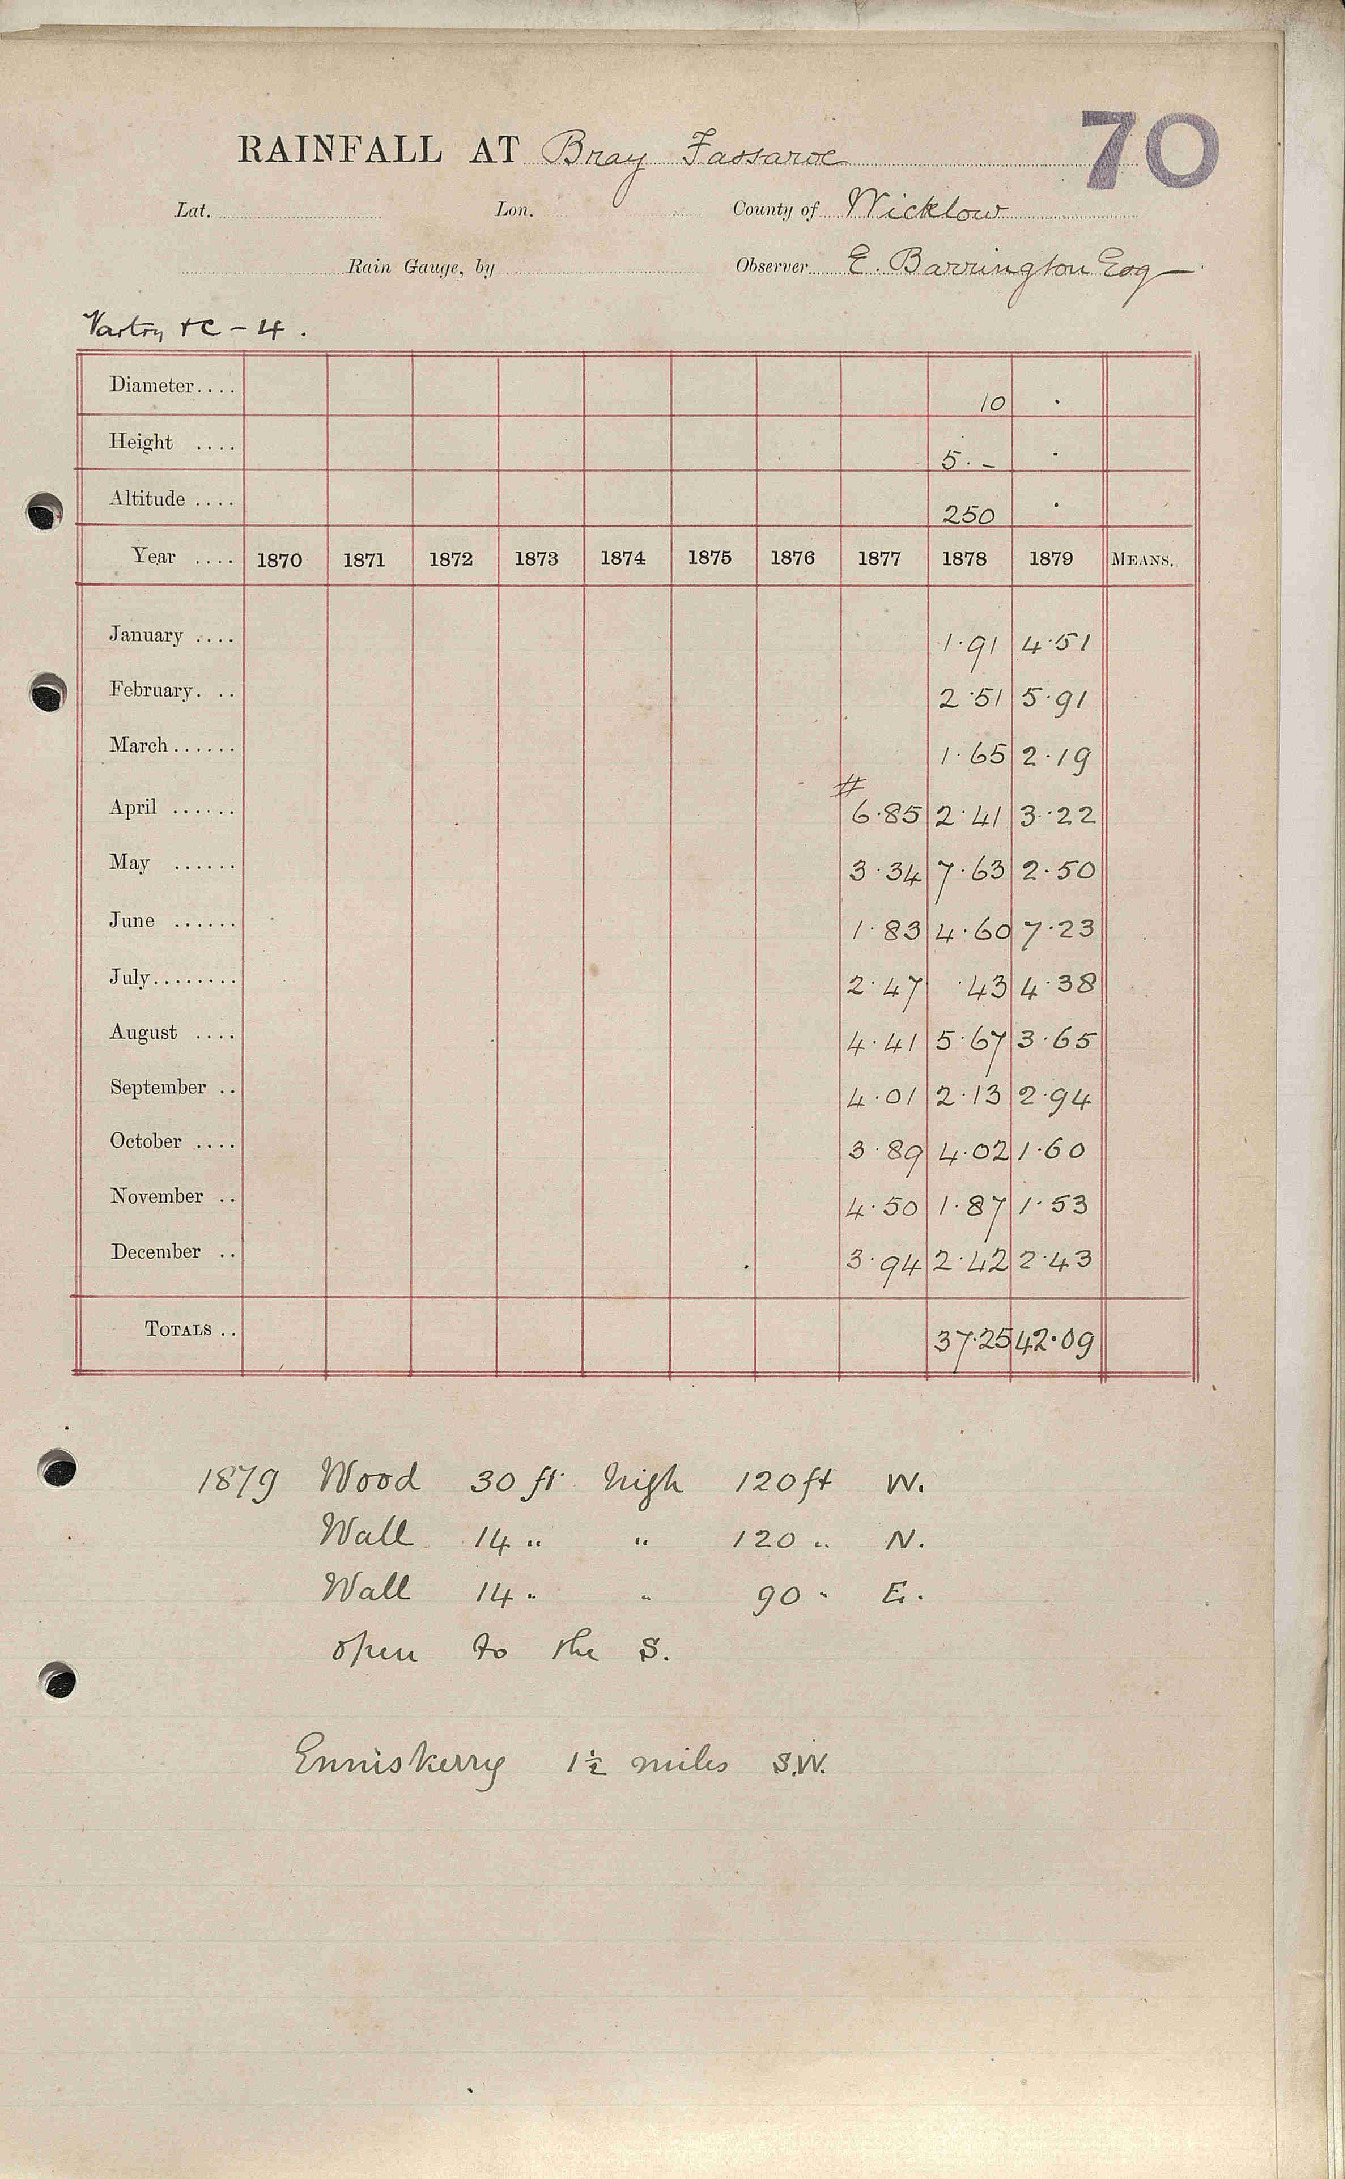 70
RAINFALL AT Bray Fassaroe
Lat. Lon. County of Wicklow
Rain Gauge, by Observer E. Barrington Esq
Vartry &c - 4.
Diameter.... 10 ·
Height .... 5. - ·
Altitude .... 250 ·
Year .... 1870 1871 1872 1873 1874 1875 1876 1877 1878 1879 MEANS.
January .... 1.91 4.51
February. .. 2.51 5.91
March...... 1.65 2.19
#
April ...... 6.85 2.41 3.22
May ...... 3.34 7.63 2.50
June ...... 1.83 4.60 7.23
July........ 2.47 .43 4.38
August .... 4.41 5.67 3.65
September .. 4.01 2.13 2.94
October .... 3.89 4.02 1.60
November .. 4.50 1.87 1.53
December .. 3.94 2.42 2.43
TOTALS .. 37.25 42.09
1879 Wood 30 ft high 120 ft W.
Wall 14 " " 120 " N.
Wall 14 " " 90 " E.
open to the S.
Enniskerry 1½ miles S.W.